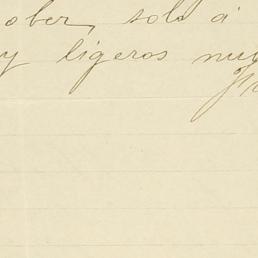 ober, solo á
y ligeros